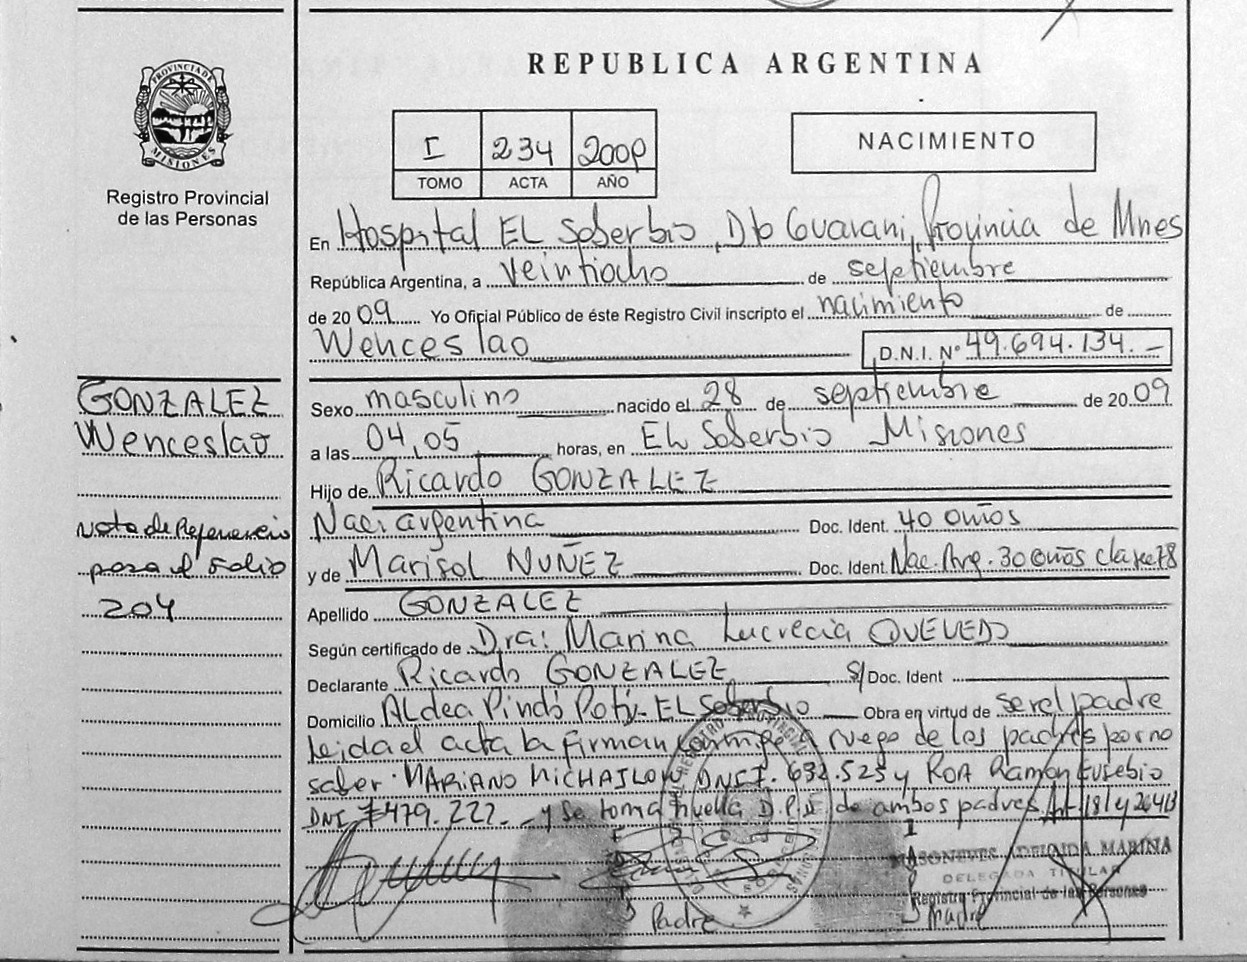 REPUBLICA ARGENTINA
PROVINCIA DE MISIONES
Registro Provincial
de las Personas
I 234 2009
TOMO ACTA AÑO
NACIMIENTO
En Hospital EL Soberbio, Dto Guarani, Provincia de Mnes
República Argentina, a veintiocho de septiembre
de 2009 Yo Oficial Público de éste Registro Civil inscripto el nacimiento de
Wenceslao D.N.I. Nº 49.694.134.-
GONZALEZ
Wenceslao
Nota de Referencia
para el Folio
204
Sexo masculino nacido el 28 de septiembre de 2009
a las 04,05 horas, en EL Soberbio Misiones
Hijo de Ricardo GONZALEZ
Nac. argentina Doc. Ident. 40 años
y de Marisol NUÑEZ Doc. Ident. Nac. Arg. 30 años clase 78
Apellido GONZALEZ
Según certificado de Dra: Marina Lucrecia QUEVEDO
Declarante Ricardo GONZALEZ S/ Doc. Ident
Domicilio ALdea Pindó Poty- EL Soberbio Obra en virtud de ser el padre
Leida el acta la firman conmigo a ruego de los padres por no
saber. MARIANO MICHAJLOW DNI 7.632.525 y ROA Ramón Eusebio
DNI 7479.222._ y se toma huella D.P.D de ambos padres
MARINA
DELEGADA TITULAR
Registro Provincial de las Personas
Padre
Madre